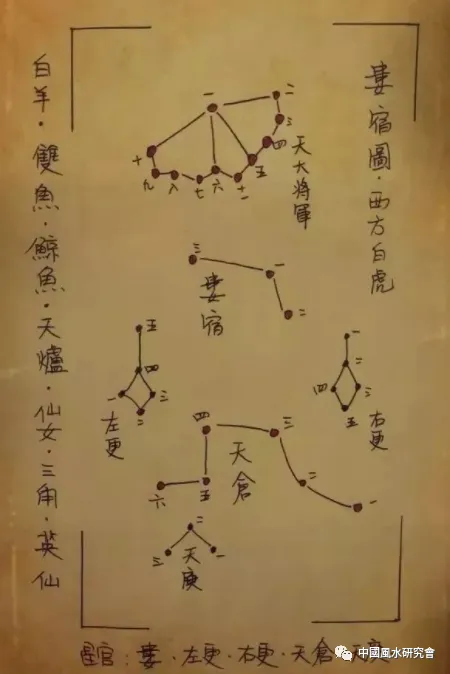 婁宿圖·西方白虎
天大将軍
一
二
三
四
五
六
七
八
九
十
十一
婁宿
一
二
三
右更
一
二
三
四
五
左更
一
二
三
四
五
天倉
一
二
三
四
五
六
天庾
一
二
三
白羊·雙魚·鯨魚·天爐·仙女·三角·英仙
星官:婁·左更·右更·天倉·天庾
中國風水研究會